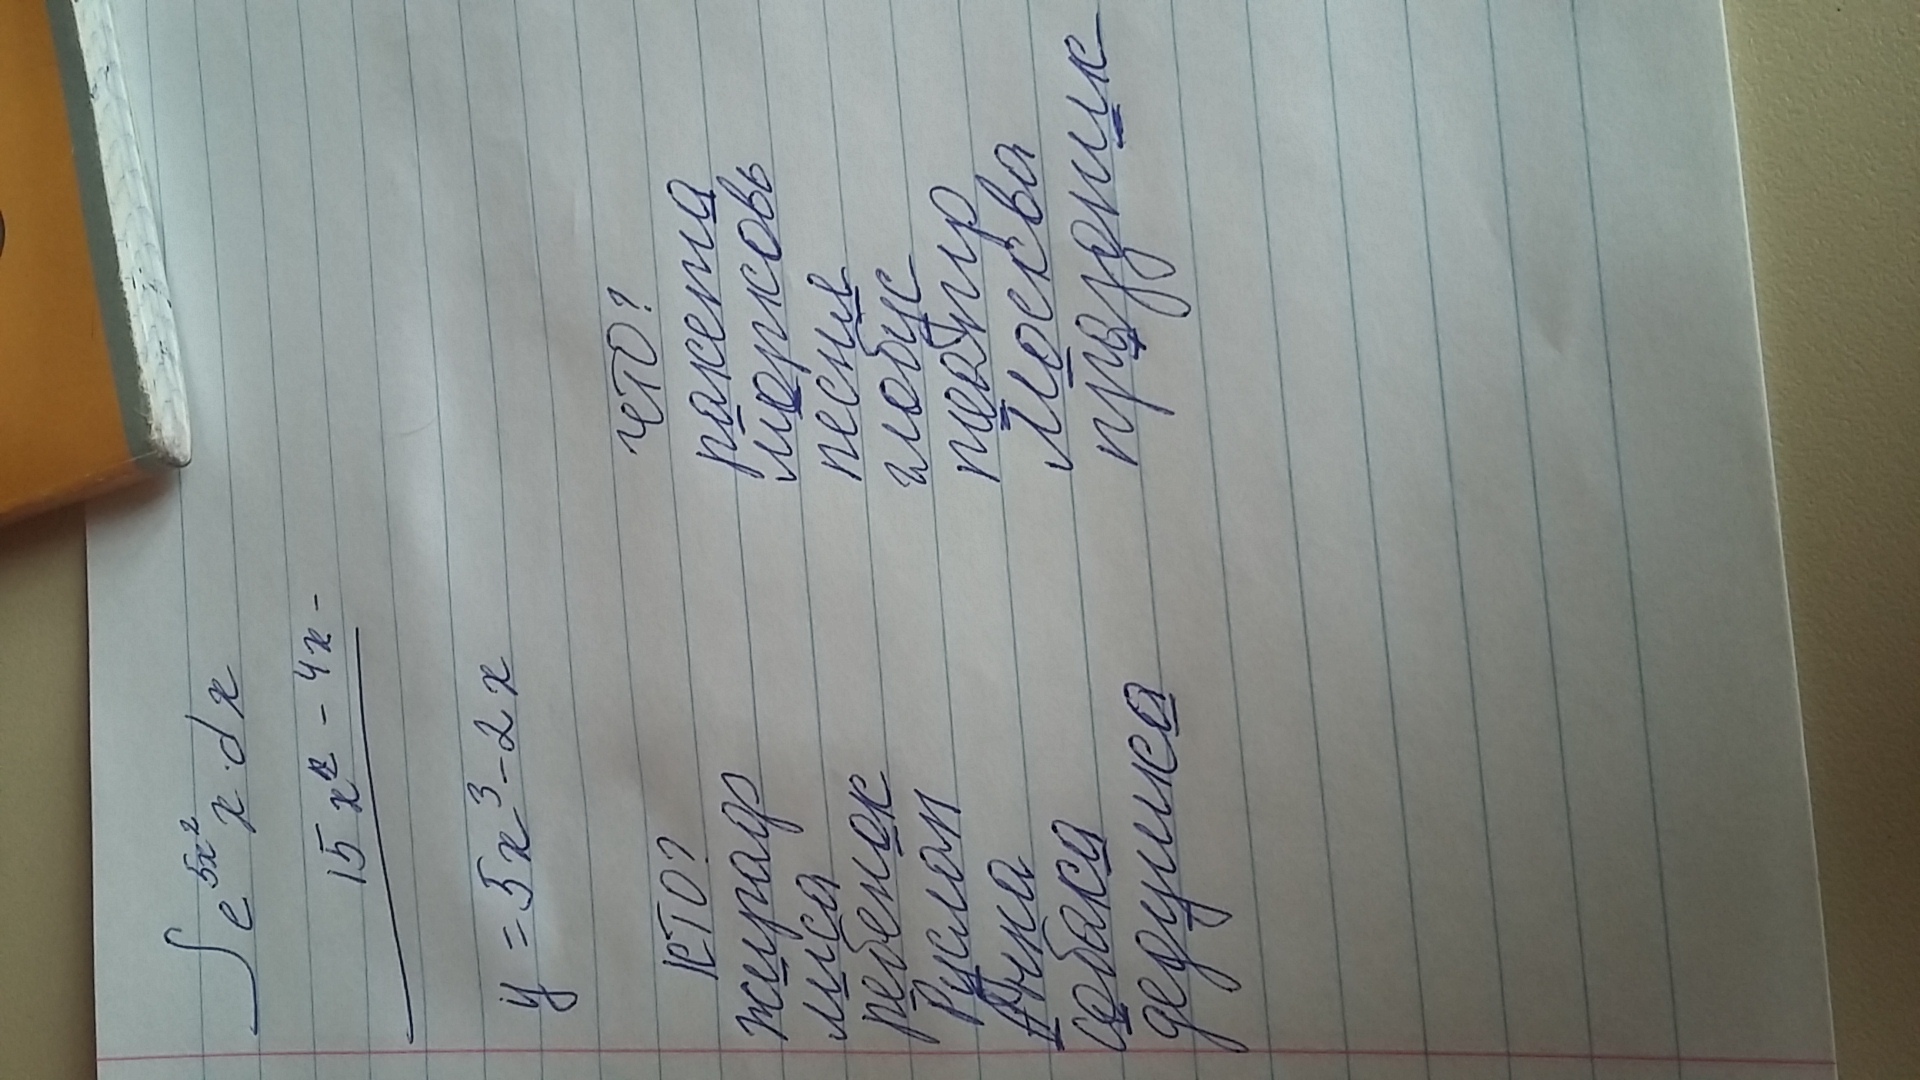 ∫e^{5x^2} x·dx
15x^2 - 4x -
y = 5x^3 - 2x
КТО? ЧТО?
жираф ракета
лиса морковь
ребенок песня
Руслан глобус
театр
собака Москва
дедушка праздник